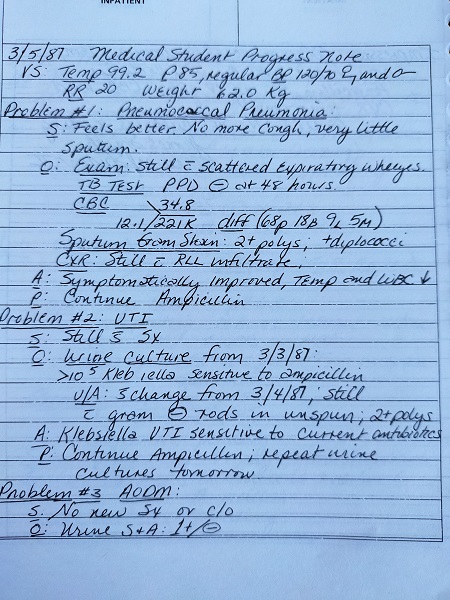 INPATIENT
3/5/87 Medical Student Progress Note
VS: Temp 99.2 P 85, regular BP 120/70
RR 20 Weight 62.0 Kg
Problem #1: Pneumococcal Pneumonia:
S: Feels better. No more cough, very little
sputum.
O: Exam: Still c̄ scattered expiratory wheezes.
TB Test PPD ⊖ at 48 hours
CBC 34.8
12.1/221K diff (68p 18B 9L 5M)
Sputum Gram Stain: 2+ polys; +diplococci
CXR: Still c̄ RLL infiltrate.
A: Symptomatically improved, Temp and WBC ↓
P: Continue Ampicillin
Problem #2: UTI
S: Still s̄ Sx
O: Urine Culture from 3/3/87:
>10⁵ Klebsiella sensitive to ampicillin
U/A: s̄ change from 3/4/87, still
c̄ gram ⊖ rods in unspun; 2+ polys
A: Klebsiella UTI sensitive to current antibiotics
P: Continue Ampicillin; repeat urine
cultures tomorrow
Problem #3 AODM:
S: No new Sx or c/o
O: Urine S+A: 1+/⊖